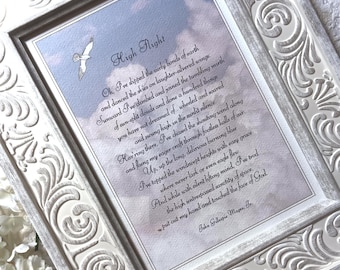 High Flight
Oh, I've slipped the surly bonds of earth
and danced the skies on laughter silvered wings
Sunward I've climbed and joined the tumbling mirth
of sun-split clouds and done a hundred things
you have not dreamed of
high in the sunlit silence
Hov'ring there, I've chased the shouting wind along
and flung my eager craft through
Up, up the long, delirious burning blue
I've topped the wind-swept heights with easy grace
where never lark or even eagle flew
And while with silent lifting mind, I've trod
the high untrespassed sanctity of space
put out my hand and touched the face of God.
John Gillespie Magee, Jr.